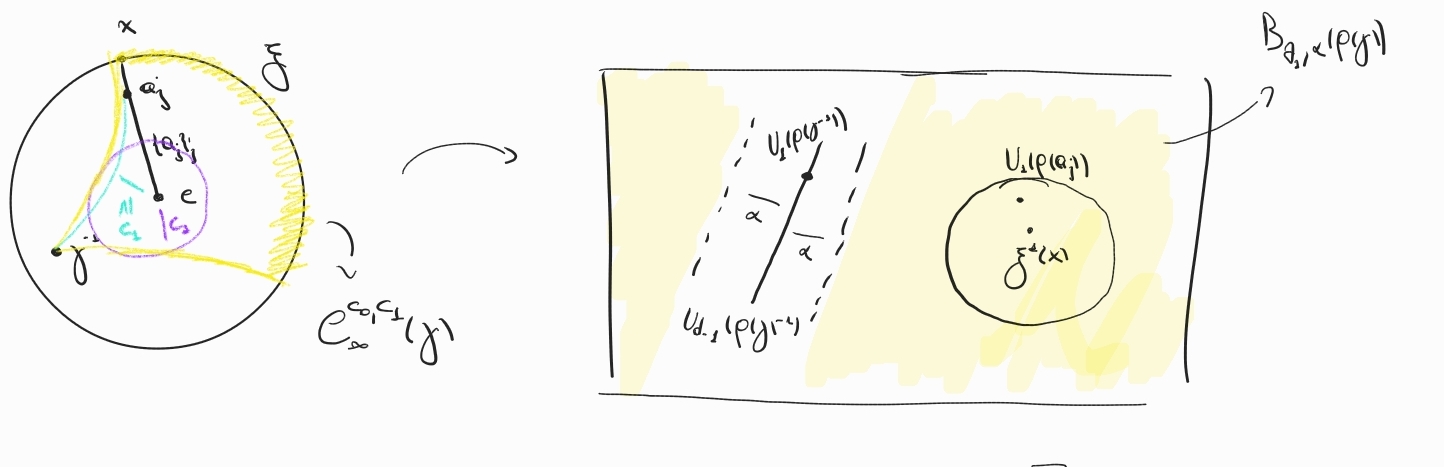 x
ξ
a_j
{a_j}_j
e
c_1
c_1
γ^{-1}
C_∞^{c_0,c_1}(γ)
B_{θ_1,α}(ρ(γ))
U_1(ρ(γ^{-1}))
α
α
U_{d-1}(ρ(γ^{-1}))
U_1(ρ(a_j))
ξ^1(x)